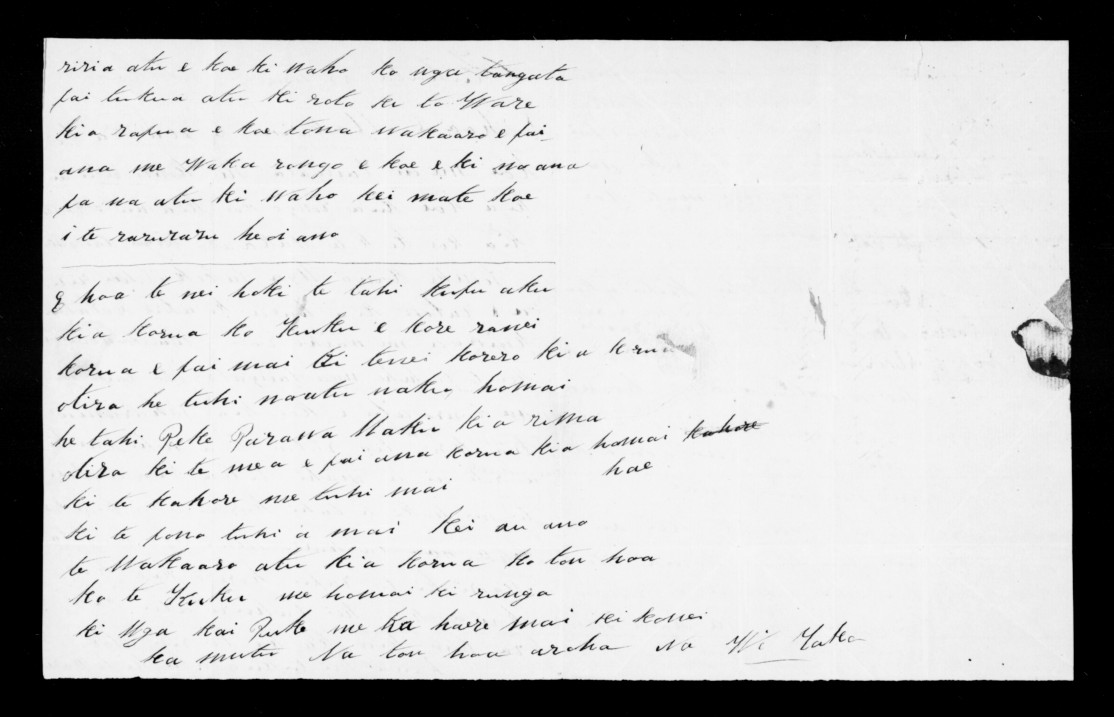 riria atu e koe ki waho ko nga tangata
pai tukua atu ki roto ki to Ware
kia rapua e koe tona wakaaro e pai
ana me Waka rongo e koe e ki no ana
pa na atu ki waho kei mate koe
i te raruraru heoi ano
E hoa te nei hoki te tahi kupu aku
kia korua ko Kuku e kore ranei
korua e pai mai ki tenei korero kia korua
otira he tuhi noatu naku, homai
he tahi Peke Parawa Maku kia rima
otira ki te mea e pai ana korua kia homai kahore
hae
ki te kahore me tuhi mai
ki te pono tuhi a mai kei au ano
te Wakaaro atu kia korua ko tou hoa
ko te Kuku me homai ki runga
ki nga kai Puke me ka haere mai ki konei
ka mutu Na tou hoa aroha Na Wi Tako